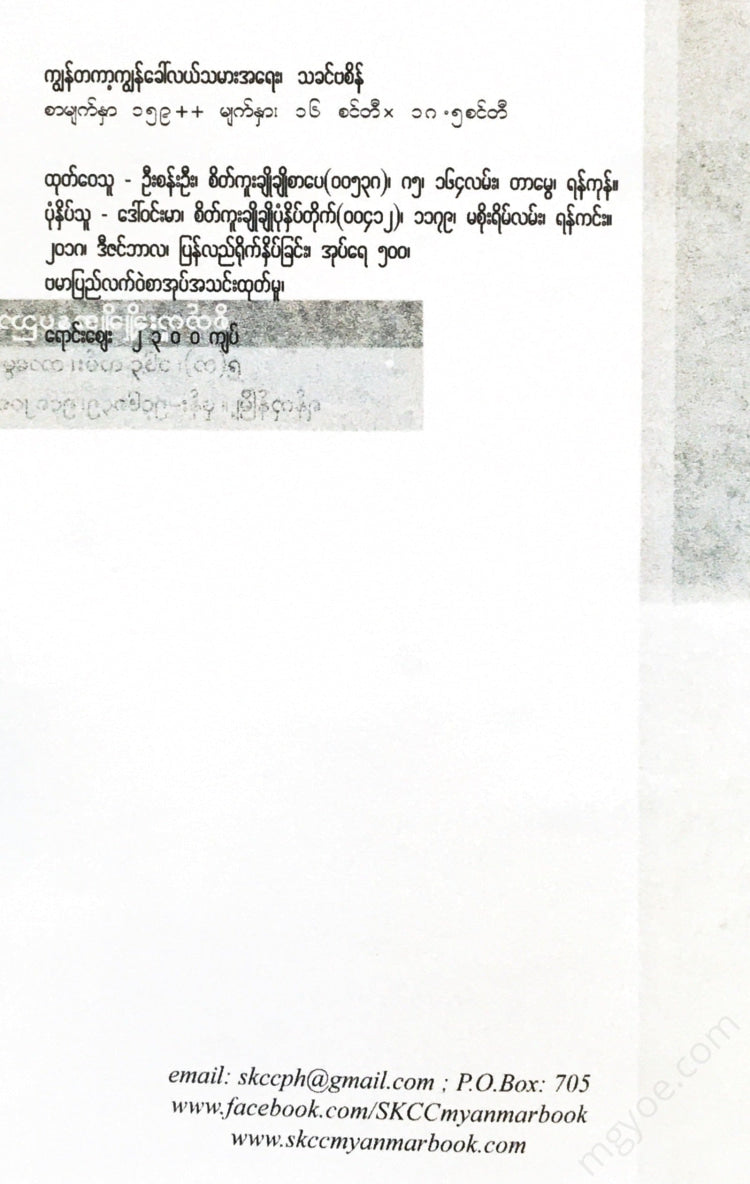 ကျွန်တကာ့ကျွန်ခေါ်လယ်သမားအရေး၊ သခင်ဗစိန်
စာမျက်နှာ ၁၅၉++ မျက်နှာ၊ ၁၆ စင်တီ× ၁၈.၅စင်တီ
ထုတ်ဝေသူ - ဦးစန်းဦး၊ စိတ်ကူးချိုချိုစာပေ(၀၀၅၃၈)၊ ၈၅၊ ၁၆၄လမ်း၊ တာမွေ၊ ရန်ကုန်။
ပုံနှိပ်သူ - ဒေါ်ဝင်းမာ၊ စိတ်ကူးချိုချိုပုံနှိပ်တိုက်(၀၀၄၁၂)၊ ၁၁၇၉၊ မစိုးရိမ်လမ်း၊ ရန်ကင်း။
၂၀၁၈၊ ဒီဇင်ဘာလ၊ ပြန်လည်ရိုက်နှိပ်ခြင်း၊ အုပ်ရေ ၅၀၀၊
ဗမာပြည်လက်ဝဲစာအုပ်အသင်းထုတ်မှု၊
ရောင်းဈေး ၂၃၀၀ ကျပ်
email: skccph@gmail.com ; P.O.Box: 705
www.facebook.com/SKCCmyanmarbook
www.skccmyanmarbook.com
mgyoe.com